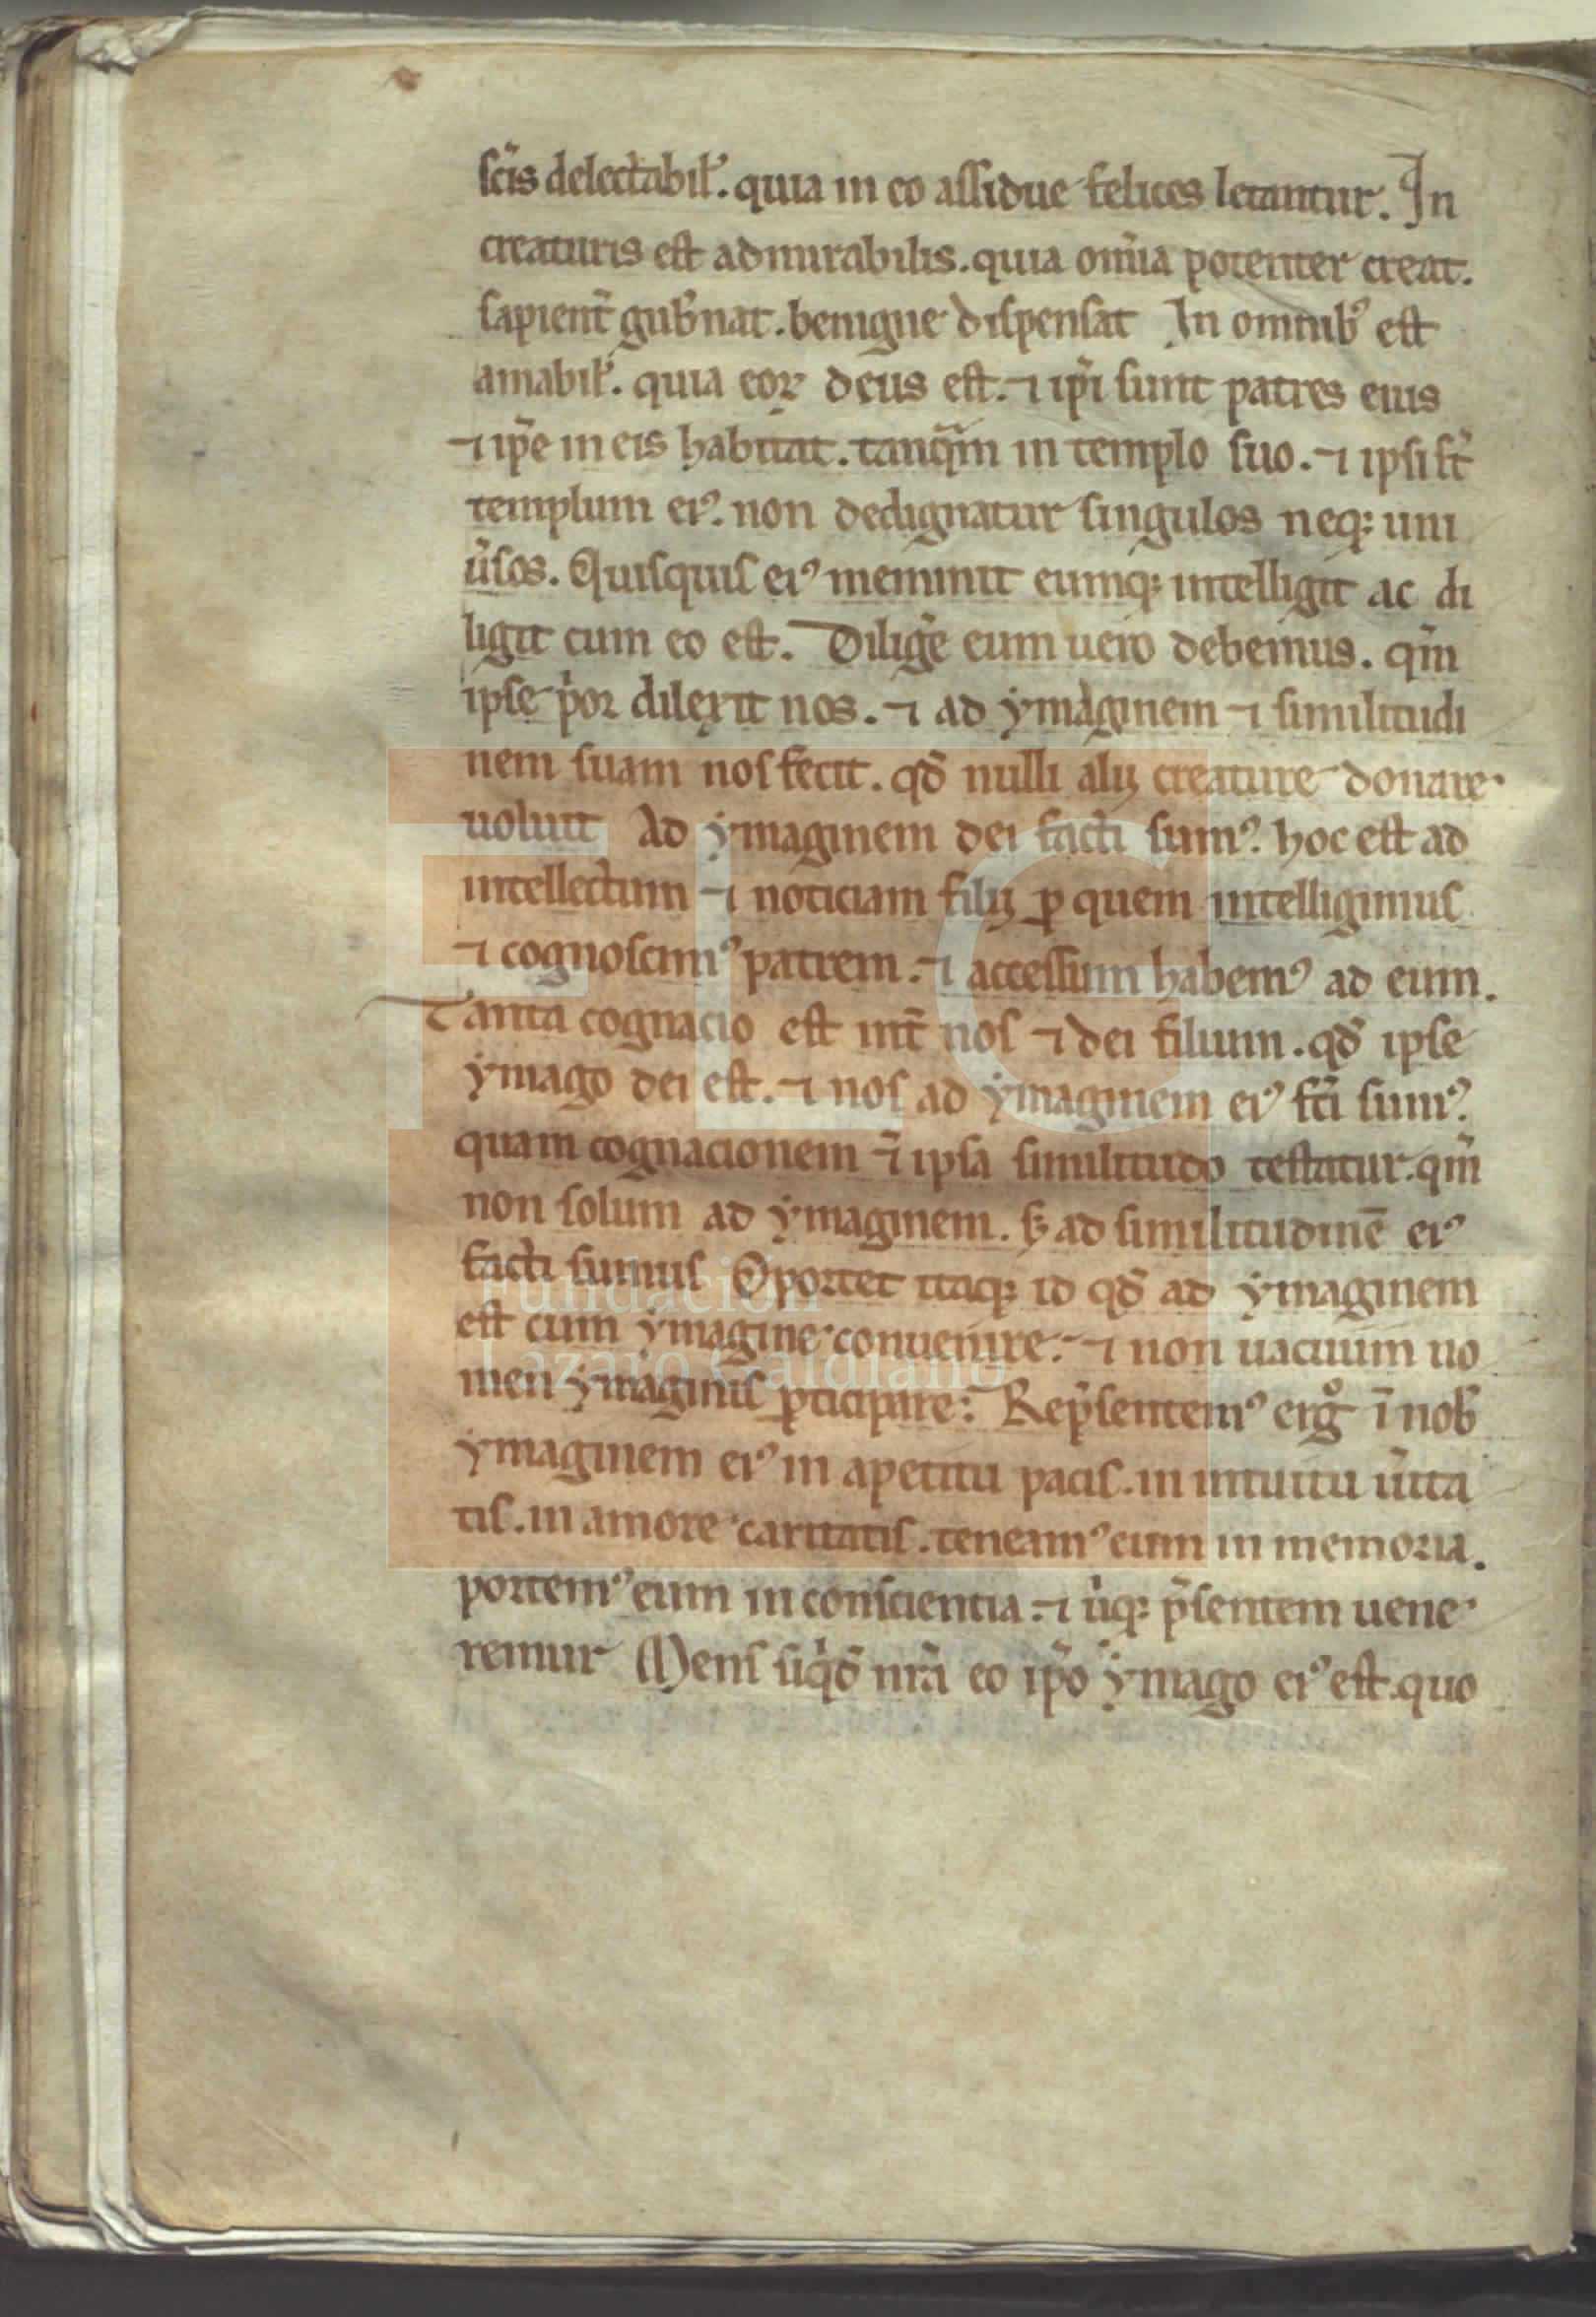 sc̄is delectabil᷑. quia in eo assidue felices letantur. In
creaturis est admirabilis. quia om̄ia potenter creat.
sapient̄ gub̄nat. benigne dispensat In omnib᷒ est
amabil᷑. quia eoꝝ deus est. ⁊ ip̄i sunt patres eius
⁊ ip̄e in eis habitat. tanq̄m in templo suo. ⁊ ipsi st̄
templum ei᷒. non dedignatur singulos neqꝫ uni
ūsos. Quisquis ei᷒ meminit eumqꝫ intelligit ac di
ligit cum eo est. Dilige̅ eum uero debemus. qm̄
ipse p̄or dilexit nos. ⁊ ad ẏmaginem ⁊ similitudi
nem suam nos fecit. qd̄ nulli alij creature donare
uoluit Ad ẏmaginem dei facti sum᷒. hoc est ad
intellectum ⁊ noticiam filij ꝑ quem intelligimus
⁊ cognoscim᷒ patrem. ⁊ accessum habem᷒ ad eum.
Tanta cognacio est int̄ nos ⁊ dei filium. qd̄ ipse
ẏmago dei est. ⁊ nos ad ẏmaginem ei᷒ fc̄i sum᷒.
quam cognacionem ⁊̄ ipsa similitudo testatur. qm̄
non solum ad ẏmaginem. s; ad similitudinē ei᷒
facti sumus Oportet itaqꝫ id qd̄ ad ẏmaginem
est cum ẏmagine conuenire. ⁊ non uacuum no
men ẏmaginis ꝑticipare. Rep̄sentem᷒ erg̊ ī nob̄
ẏmaginem ei᷒ in apetitu pacis. in intuitu ūita
tis. in amore caritatis. teneam᷒ eum in memoria.
portem᷒ eum in conscientia. ⁊ ub̄iqꝫ p̄sentem uene
remur Mens siq̇d̄ nr̄a eo ip̄o ẏmago ei᷒ est. quo
FLG
Fundación
Lázaro Galdiano